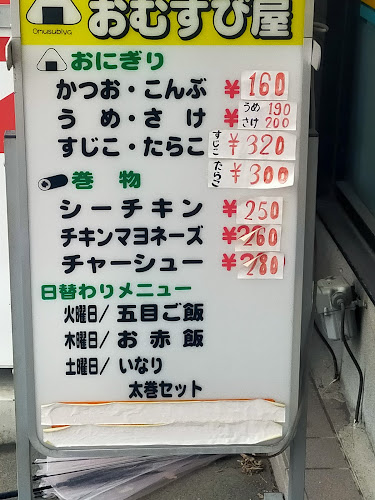 Omusubiya
おむすび屋
おにぎり
かつお・こんぶ ¥160
うめ・さけ ¥ うめ 190 さけ 200
すじこ・たらこ すじこ ¥320
たらこ ¥300
巻物
シーチキン ¥250
チキンマヨネーズ ¥260
チャーシュー ¥280
日替わりメニュー
火曜日/五目ご飯
木曜日/お赤飯
土曜日/いなり
太巻セット